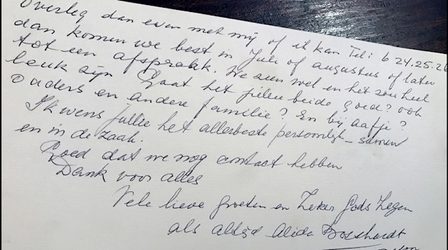 Overleg dan even met mij of it kan Tel: 6 24.25.2
dan komen we best in Juli of augustus of later
tot een afspraak. We zien wel en het zou heel
leuk zijn Gaat het jullie beide goed? ook
ouders en andere familie? En bij aafje?
Ik wens jullie het allerbeste persoonlijk - samen
en in de zaak.
Goed dat we nog contact hebben
Dank voor alles
Vele lieve groeten en zeker Gods Zegen
als altijd Alida Bosshardt